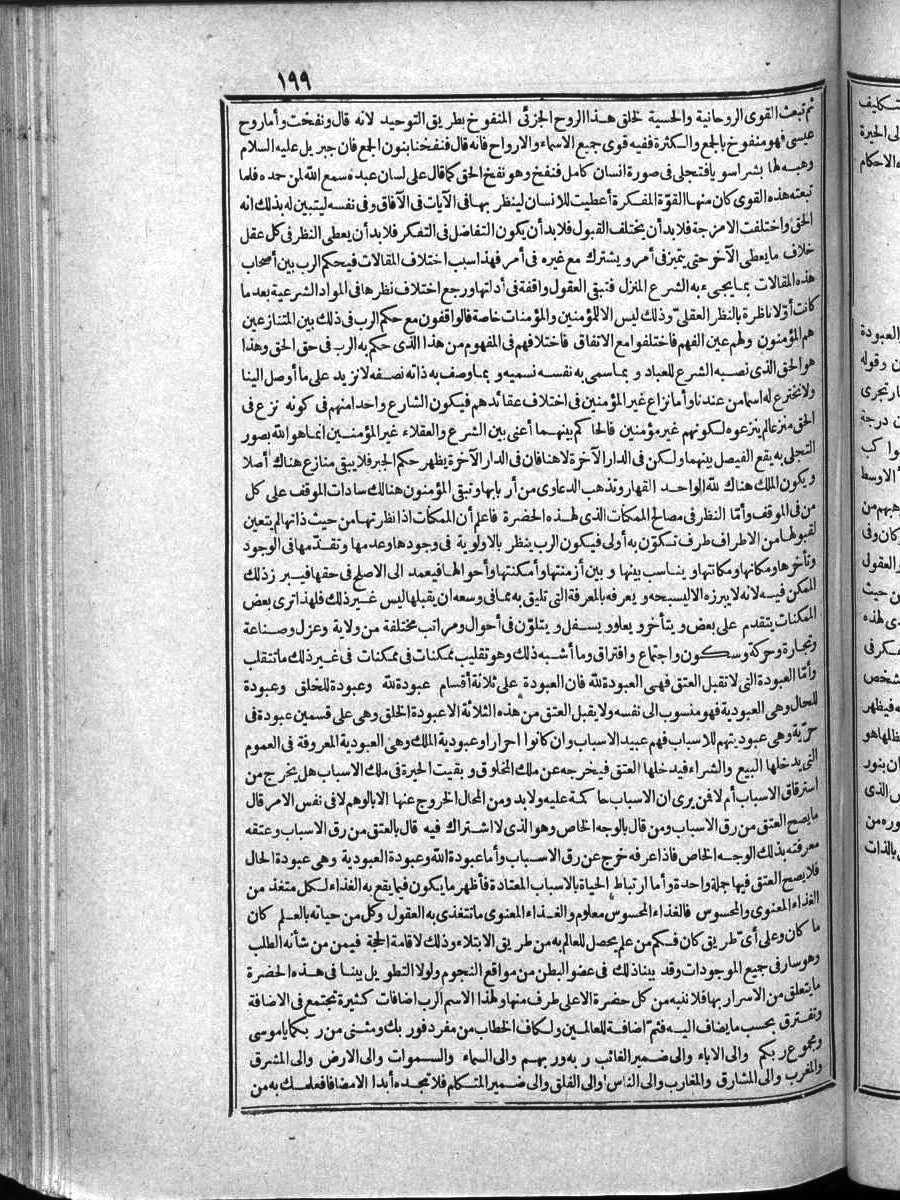 ١٩٩
ثم تبعث القوى الروحانية والحسية لخلق هذا الروح الجزئى المنفوخ بطريق التوحيد لانه قال ونفخت وأما روح
عيسى فهو منفوخ بالجمع والكثرة ففيه قوى جميع الاسماء والارواح فانه قال فنفخنا بنون الجمع فان جبريل عليه السلام
وهبه لها بشرا سويا فتجلى فى صورة انسان كامل فنفخ وهو نفخ الحق كما قال على لسان عبده سمع الله لمن حمده فلما
تبعته هذه القوى كان منها القوّة المفكرة أعطيت للانسان لينظر بها فى الآيات فى الآفاق وفى نفسه ليتبين له بذلك انه
الحق واختلفت الامزجة فلابد أن يختلف القبول فلابد أن يكون التفاضل فى التفكر فلابد أن يعطى النظر فى كل عقل
خلاف ما يعطى الآخر حتى يتميز فى أمر ويشترك مع غيره فى أمر فهذا سبب اختلاف المقالات فيحكم الرب بين أصحاب
هذه المقالات بما يجىء به الشرع المنزل فتبقى العقول واقفة فى أدلتها ورجع اختلاف نظرها فى المواد الشرعية بعد ما
كانت أوّلا ناظرة بالنظر العقلىّ وذلك ليس الا للمؤمنين والمؤمنات خاصة فالواقفون مع حكم الرب فى ذلك بين المتنازعين
هم المؤمنون ولهم عين الفهم فاختلفوا مع الاتفاق فاختلافهم فى المفهوم من هذا الذى حكم به الرب فى حق الحق وهذا
هو الحق الذى نصبه الشرع للعباد وبما سمى به نفسه نسميه وبما وصف به ذاته نصفه لا نزيد على ما أوصل الينا
ولا نخترع له اسما من عندنا وأما نزاع غير المؤمنين فى اختلاف عقائدهم فيكون الشارع واحدا منهم فى كونه نزع فى
الحق منزعا لم ينزعوه لكونهم غير مؤمنين فالحاكم بينهما أعنى بين الشرع والعقلاء غير المؤمنين انما هو الله بصور
التجلى به يقع الفيصل بينهما ولكن فى الدار الآخرة لا هنا فان فى الدار الآخرة يظهر حكم الجبر فلا يبقى منازع هناك أصلا
ويكون الملك هناك لله الواحد القهار وتذهب الدعاوى من أربابها وتبقى المؤمنون هنالك سادات الموقف على كل
من فى الموقف وأمّا النظر فى مصالح الممكنات الذى لهذه الحضرة فاعلم أن الممكنات اذا نظرتها من حيث ذاتها لم يتعين
لقبولها من الاطراف طرف تكون به أولى فيكون الرب ينظر بالاولوية فى وجودها وعدمها وتقدّمها فى الوجود
وتأخرها ومكانها ومكانتها ويناسب بينها وبين أزمنتها وأمكنتها وأحوالها فيعمد الى الاصلح فى حقها فيبرز ذلك
الممكن فيه لانه لا يبرزه الا ليسبحه ويعرفه بالمعرفة التى تليق به مما فى وسعه ان يقبلها ليس غير ذلك فلهذا ترى بعض
الممكنات يتقدم على بعض ويتأخر ويعلو ويسفل ويتلوّن فى أحوال ومراتب مختلفة من ولاية وعزل وصناعة
وتجارة وحركة وسكون واجتماع وافتراق وما أشبه ذلك وهو تقليب ممكنات فى ممكنات فى غير ذلك ما تتقلب
وأمّا العبودة التى لا تقبل العتق فهى العبودة لله فان العبودة على ثلاثة أقسام عبودة لله وعبودة للخلق وعبودة
للحال وهى العبودية فهو منسوب الى نفسه ولا يقبل العتق من هذه الثلاثة الا عبودة الخلق وهى على قسمين عبودة فى
حرّية وهى عبوديتهم للاسباب فهم عبيد الاسباب وان كانوا احرارا وعبودية الملك وهى العبودية المعروفة فى العموم
التى يدخلها البيع والشراء فيدخلها العتق فيخرجه عن ملك المخلوق وبقيت الحيرة فى ملك الاسباب هل يخرج من
استرقاق الاسباب أم لا فمن يرى ان الاسباب حاكمة عليه ولابد ومن المحال الخروج عنها الا بالوهم لا فى نفس الامر قال
ما يصح العتق من رق الاسباب ومن قال بالوجه الخاص وهو الذى لا اشتراك فيه قال بالعتق من رق الاسباب وعتقه
معرفته بذلك الوجه الخاص فاذا عرفه خرج عن رق الاسباب وأما عبودة الله وعبودة العبودية وهى عبودة الحال
فلا يصح العتق فيها جملة واحدة وأما ارتباط الحياة بالاسباب المعتادة فأظهر ما يكون فيما يقع به الغذاء لكل متغذ من
الغذاء المعنوى والمحسوس فالغذاء المحسوس معلوم والغذاء المعنوى ما تتغذى به العقول وكل من حياته بالعلم كان
ما كان وعلى أىّ طريق كان فكم من علم يحصل للعالم به من طريق الابتلاء وذلك لاقامة الحجة فيمن من شأنه الطلب
وهو سار فى جميع الموجودات وقد بينا ذلك فى عضو البطن من مواقع النجوم ولولا التطويل بينا فى هذه الحضرة
ما يتعلق من الاسرار بها فلا ننبه من كل حضرة الا على طرف منها ولهذا الاسم الرب اضافات كثيرة تجتمع فى الاضافة
وتفترق بحسب ما يضاف اليه فثمّ اضافة للعالمين ولكاف الخطاب من مفرد فوربك ومثنى من ربكما يا موسى
ومجموع ربكم والى الاباء والى ضمير الغائب ربه وربهم والى السماء والسموات والى الارض والى المشرق
والمغرب والى المشارق والمغارب والى الناس والى الفلق والى ضمير المتكلم فلا تجده أبدا الا مضافا فعلمك به من